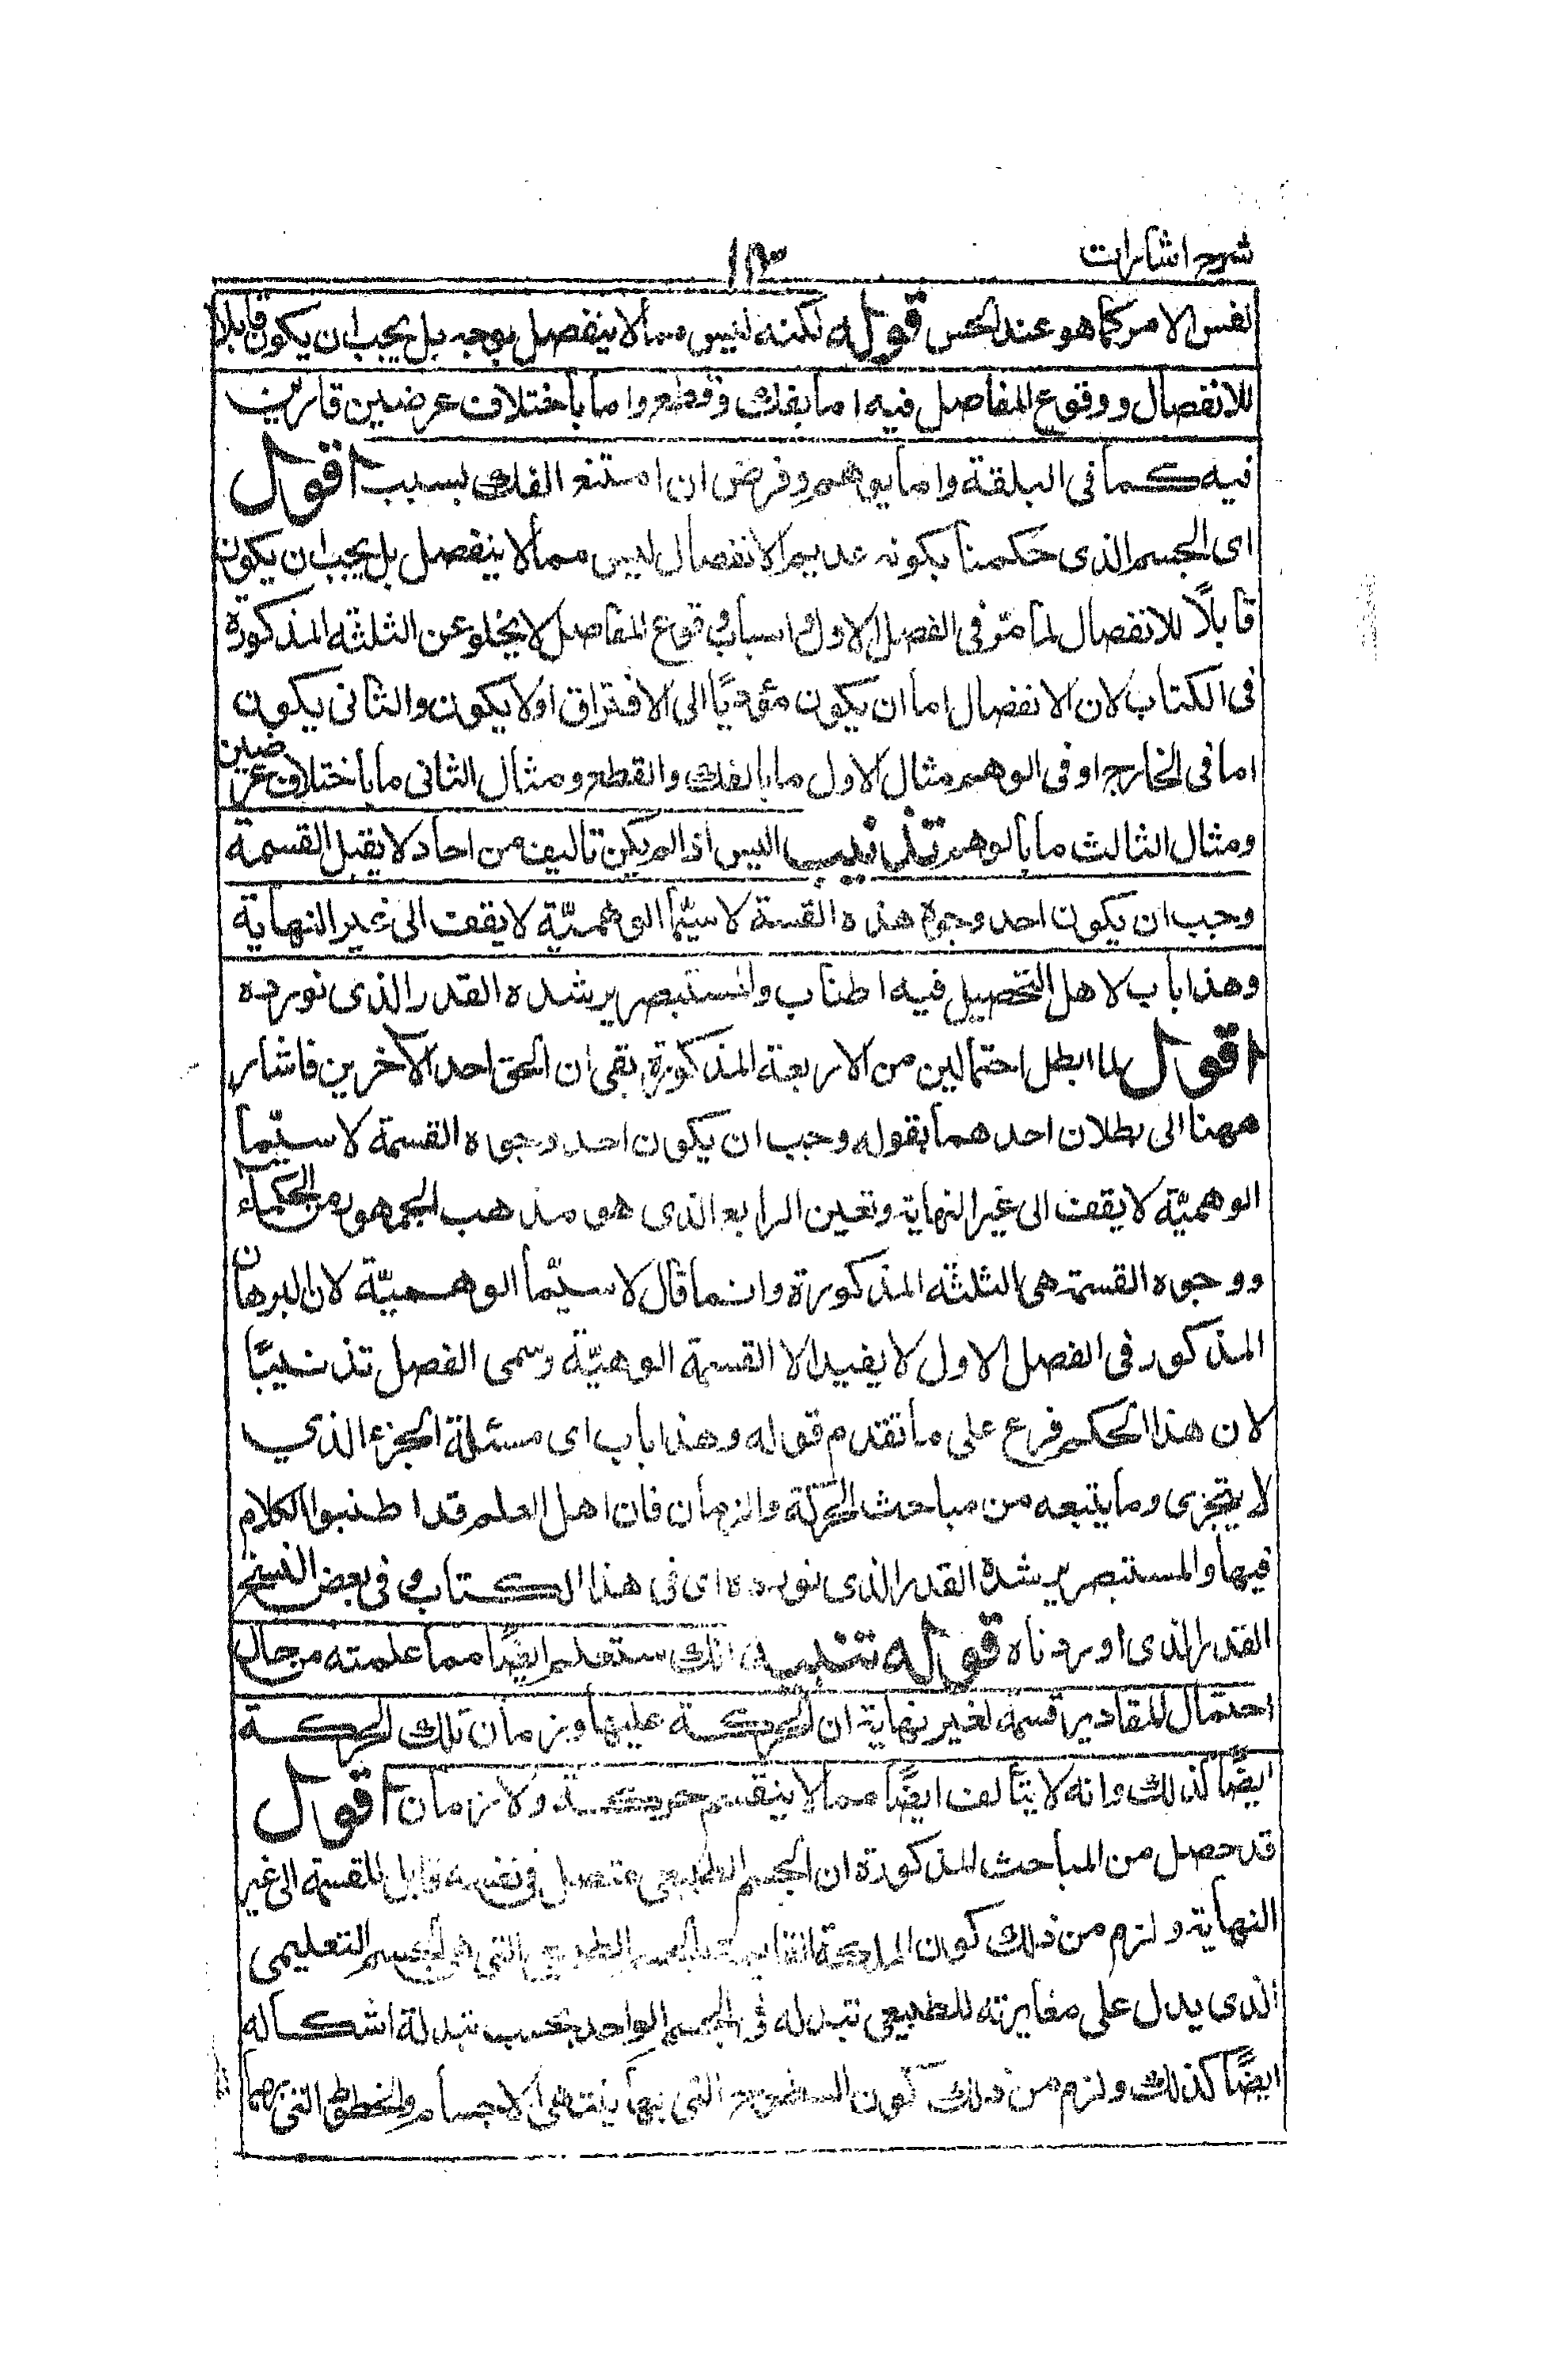 شرح اشارات
١٣
نفس الامر كما هو عند الحس قوله لكنه ليس مما لا ينفصل بوجه بل يجب ان يكون قابلا
للانفصال ووقوع المفاصل فيه اما بفك وقطع واما باختلاف عرضين قارين
فيه كما فى البلقة واما بوهم وفرض ان امتنع الفك بسبب اقول
اى الجسم الذى حكمنا بكونه عديم الانفصال ليس مما لا ينفصل بل يجب ان يكون
قابلًا للانفصال لما مرّ فى الفصل الاول واسباب وقوع المفاصل لا يخلو عن الثلثة المذكورة
فى الكتاب لان الانفصال اما ان يكون مؤديًا الى الافتراق اولا يكون والثانى يكون
اما فى الخارج او فى الوهم مثال الاول ما بالفك والقطع ومثال الثانى ما باختلاف عرضين
ومثال الثالث ما بالوهم تذنيب اليس اذا لم يكن تاليف من احاد لا يقبل القسمة
وجب ان يكون احد وجوه هذه القسمة لا سيّما الوهميّة لا يقف الى غير النهاية
وهذا باب لاهل التحصيل فيه اطناب والمستبصر يرشده القدر الذى نورده
اقول لما ابطل احتمالين من الاربعة المذكورة بقى ان الحق احد الآخرين فاشار
ههنا الى بطلان احدهما بقوله وجب ان يكون احد وجوه القسمة لا سيّما
الوهميّة لا يقف الى غير النهاية وتعين الرابع الذى هو مذهب الجمهور من الحكماء
ووجوه القسمة هى الثلثة المذكورة وانما قال لا سيّما الوهميّة لان البرهان
المذكور فى الفصل الاول لا يفيد الا القسمة الوهميّة وسمى الفصل تذنيبًا
لان هذا الحكم فرع على ما تقدم قوله وهذا باب اى مسئلة الجزء الذي
لا يتجزى وما يتبعه من مباحث الحركة والزمان فان اهل العلم قد اطنبوا الكلام
فيها والمستبصر يرشده القدر الذى نورده اى فى هذا الكتاب وفى بعض النسخ
القدر الذى اوردناه قوله تنبيه انك ستعلم ايضًا مما علمته من حال
احتمال المقادير قسمة لغير نهاية ان الحركة عليها وزمان تلك الحركة
ايضًا كذلك وانه لا يتألف ايضًا مما لا ينقسم حركة ولا زمان اقول
قد حصل من المباحث المذكورة ان الجسم الطبيعى متصل فى نفسه قابل للقسمة الى غير
النهاية ولزم من ذلك كون الطبيعى التى هى الجسم التعليمى
الذى يدل على مغايرته للطبيعى تبدله فى الجسم الواحد بحسب تبدلة اشكاله
ايضًا كذلك ولزم من ذلك كون السطوح التى بها ينتهى الاجسام والخطوط التى بها